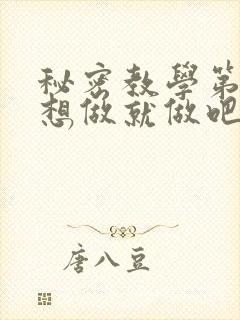 秘密教學第
想做就做吧
唐八豆